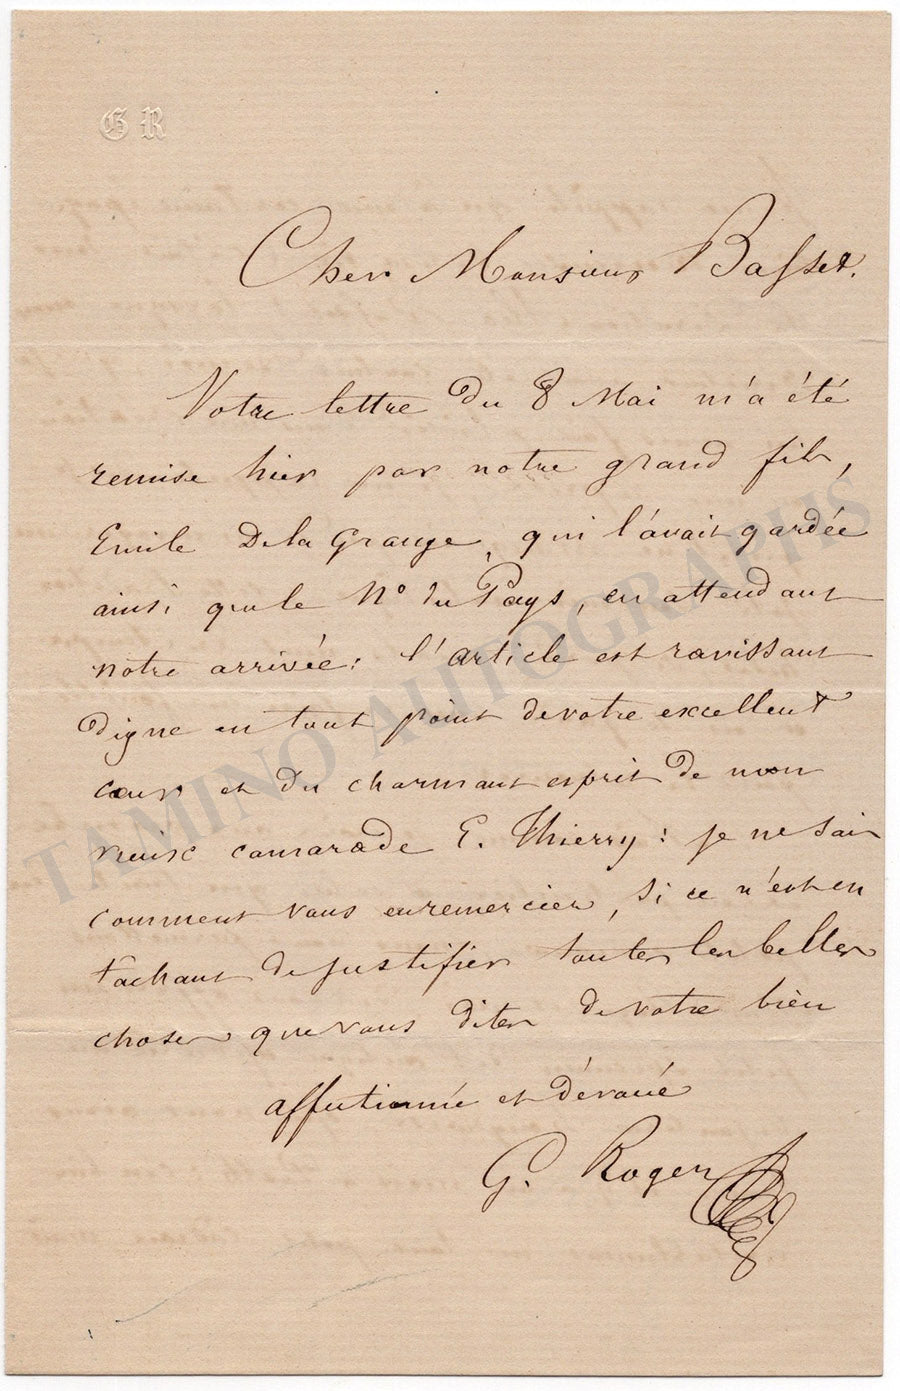 G R
Cher Monsieur Basset.
Votre lettre du 8 Mai m'a été
remise hier par notre grand fils,
Emile Dela Grange, qui l'avait gardée
ainsi que le N° du Pays, en attendant
notre arrivée : l'article est ravissant
digne en tout point de votre excellent
cœur et du charmant esprit de mon
vieux camarade E. Thierry : je ne sais
comment vous en remercier, si ce n'est en
tâchant de justifier toutes les belles
choses que vous dites de votre bien
affectionné et dévoué
G. Roger
TAMINO AUTOGRAPHS